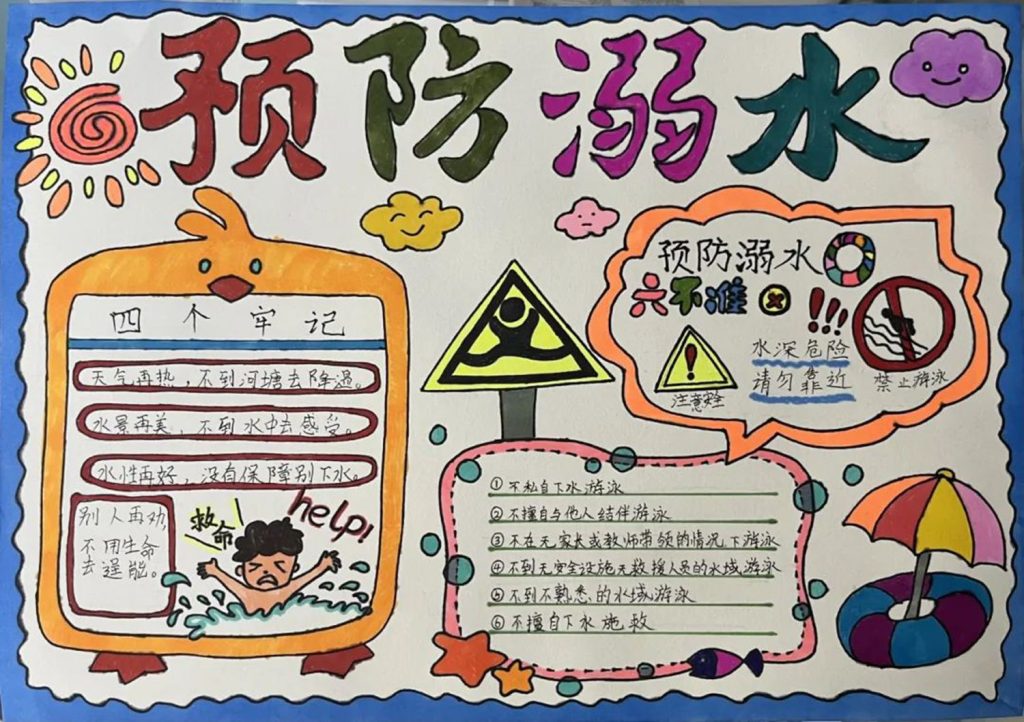 预防溺水
四个牢记
天气再热，不到河塘去降温。
水景再美，不到水中去感受。
水性再好，没有保障别下水。
别人再劝，
不用生命
去逞能。
救命
help!
预防溺水
六不准
!!!
水深危险
请勿靠近
注意安全
禁止游泳
①不私自下水游泳
②不擅自与他人结伴游泳
③不在无家长或教师带领的情况下游泳
④不到无安全设施无救援人员的水域游泳
⑤不到不熟悉的水域游泳
⑥不擅自下水施救